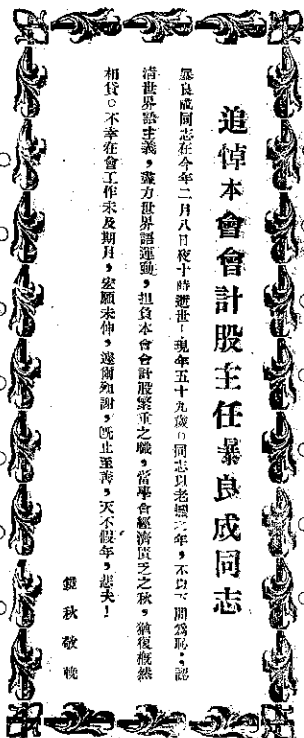 追悼本會會計股主任暴良成同志
暴良成同志在今年二月八日夜十時逝世!現年五十九歲。同志以老邁之年,不以下問爲恥;認
清世界語主義,盡力世界語運動,担負本會會計股繁重之職,當學會經濟匱乏之秋,猶復慨然
相貸。不幸在會工作未及期月,宏願未伸,遽爾殂謝,旣止至善,天不假年,悲夫!
鏡秋敬輓